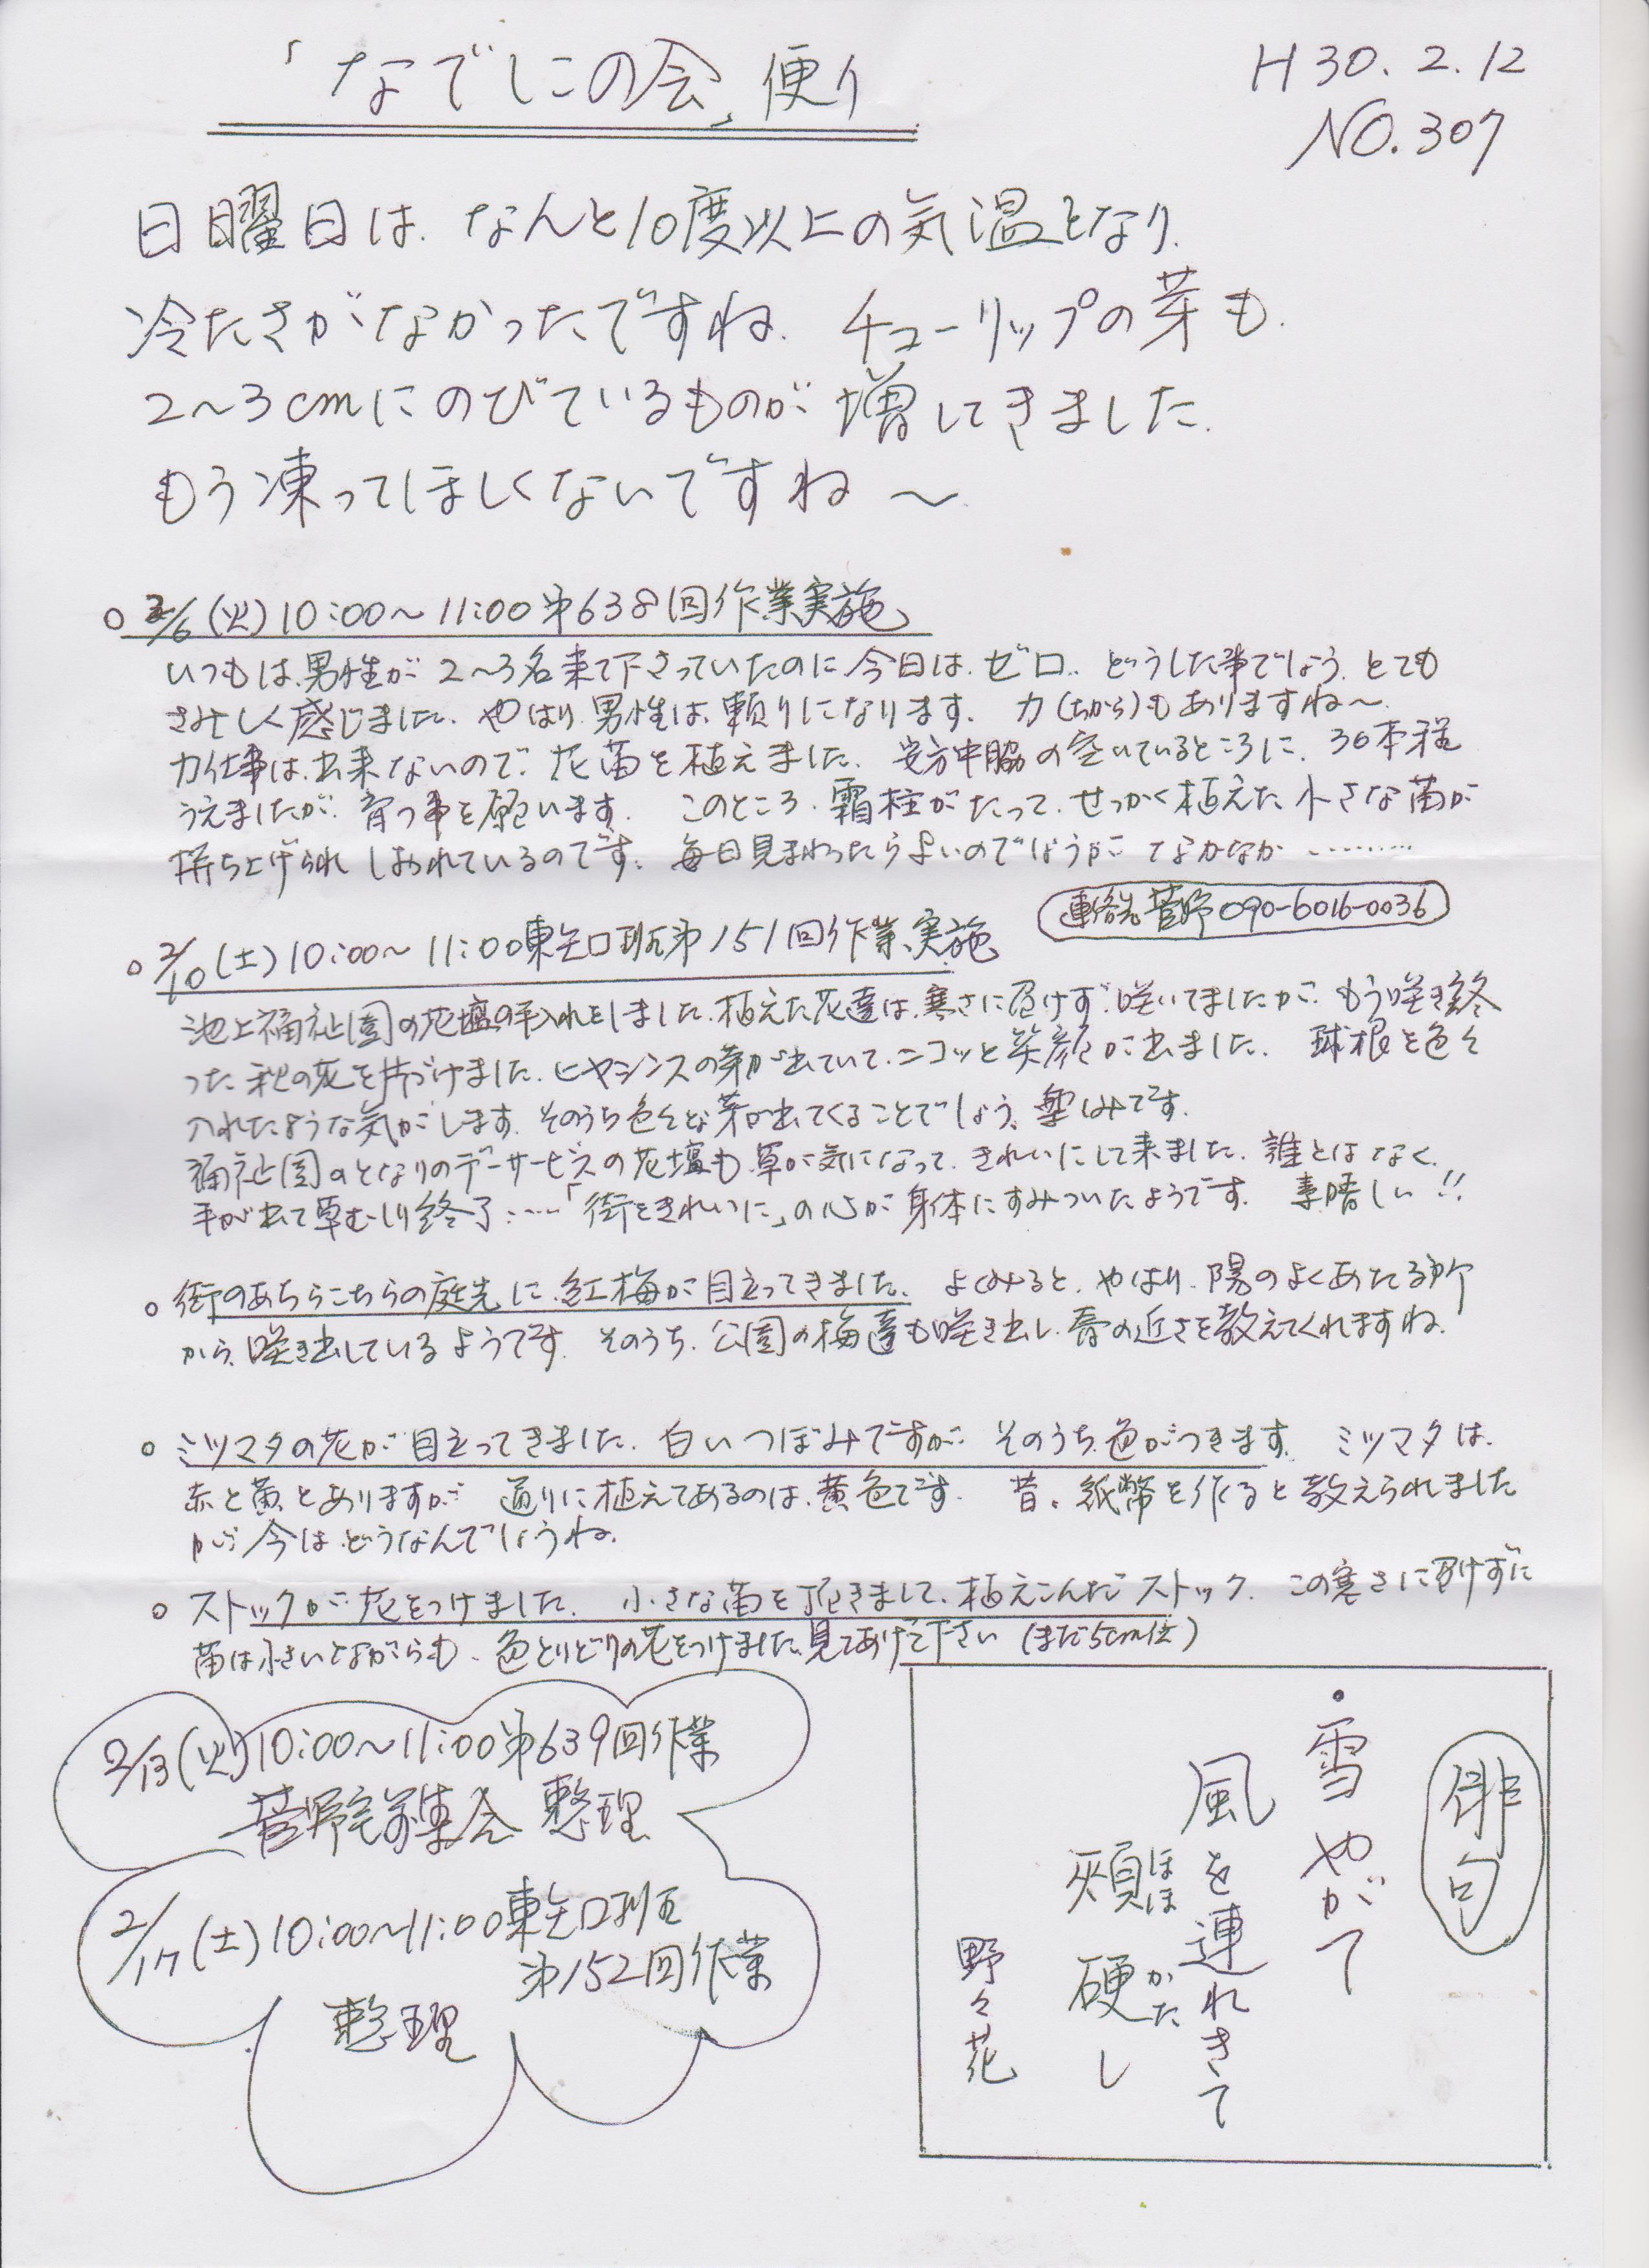 「なでしこの会」便り
H30.2.12
NO.307
日曜日は、なんと10度以上の気温となり、
冷たさがなかったですね。チューリップの芽も、
2～3cmにのびているものが増してきました。
もう凍ってほしくないですね～
○ 2/6(火)10:00～11:00第638回作業実施
いつもは、男性が2～3名来て下さっていたのに今日は、ゼロ.. どうした事でしょう。とても
さみしく感じました。やはり、男性は、頼りになります。力(ちから)もありますね～
力仕事は、出来ないので、花苗を植えました。安方中脇の空いているところに、30本程
うえましたが、育つ事を願います。このところ、霜柱がたって、せっかく植えた小さな苗が
持ち上げられしおれているのです。毎日見まわったらよいのでしょうが、なかなか………
連絡先 菅野090-6016-0036
○ 2/10(土)10:00～11:00東矢口班第151回作業実施
池上福祉園の花壇の手入れをしました。植えた花達は、寒さに負けず、咲いてましたが、もう咲き終
った秋の花を片づけました。ヒヤシンスの芽が出ていて、ニコッと笑顔が出ました。球根を色々
入れたような気がします。そのうち色々な芽が出てくることでしょう、楽しみです。
福祉園のとなりのデーサービスの花壇も、草が気になって、きれいにして来ました。誰とはなく、
手が出て草むしり終了……「街をきれいに」の心が身体にすみついたようです。素晴しい!!
○ 街のあちらこちらの庭先に、紅梅が目立ってきました。よくみると、やはり、陽のよくあたる所
から、咲き出しているようです。そのうち、公園の梅達も咲き出し、春の近さを教えてくれますね。
○ ミツマタの花が目立ってきました。白いつぼみですが、そのうち、色がつきます。ミツマタは、
赤と黄とありますが、通りに植えてあるのは、黄色です。昔、紙幣を作ると教えられました
が、今はどうなんでしょうね。
○ ストックが、花をつけました。小さな苗を頂きまして、植えこんだストック、この寒さに負けずに
苗は小さいながらも、色とりどりの花をつけました。見てあげて下さい(まだ5cm位)
2/13(火)10:00～11:00第639回作業
菅野宅前集合 整理
2/17(土)10:00～11:00東矢口班
第152回作業
整理
俳句
・雪やがて
風を連れきて
頬ほほ硬かたし
野々花